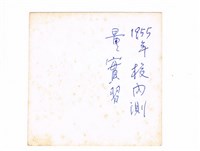 1955年校內測
量實習